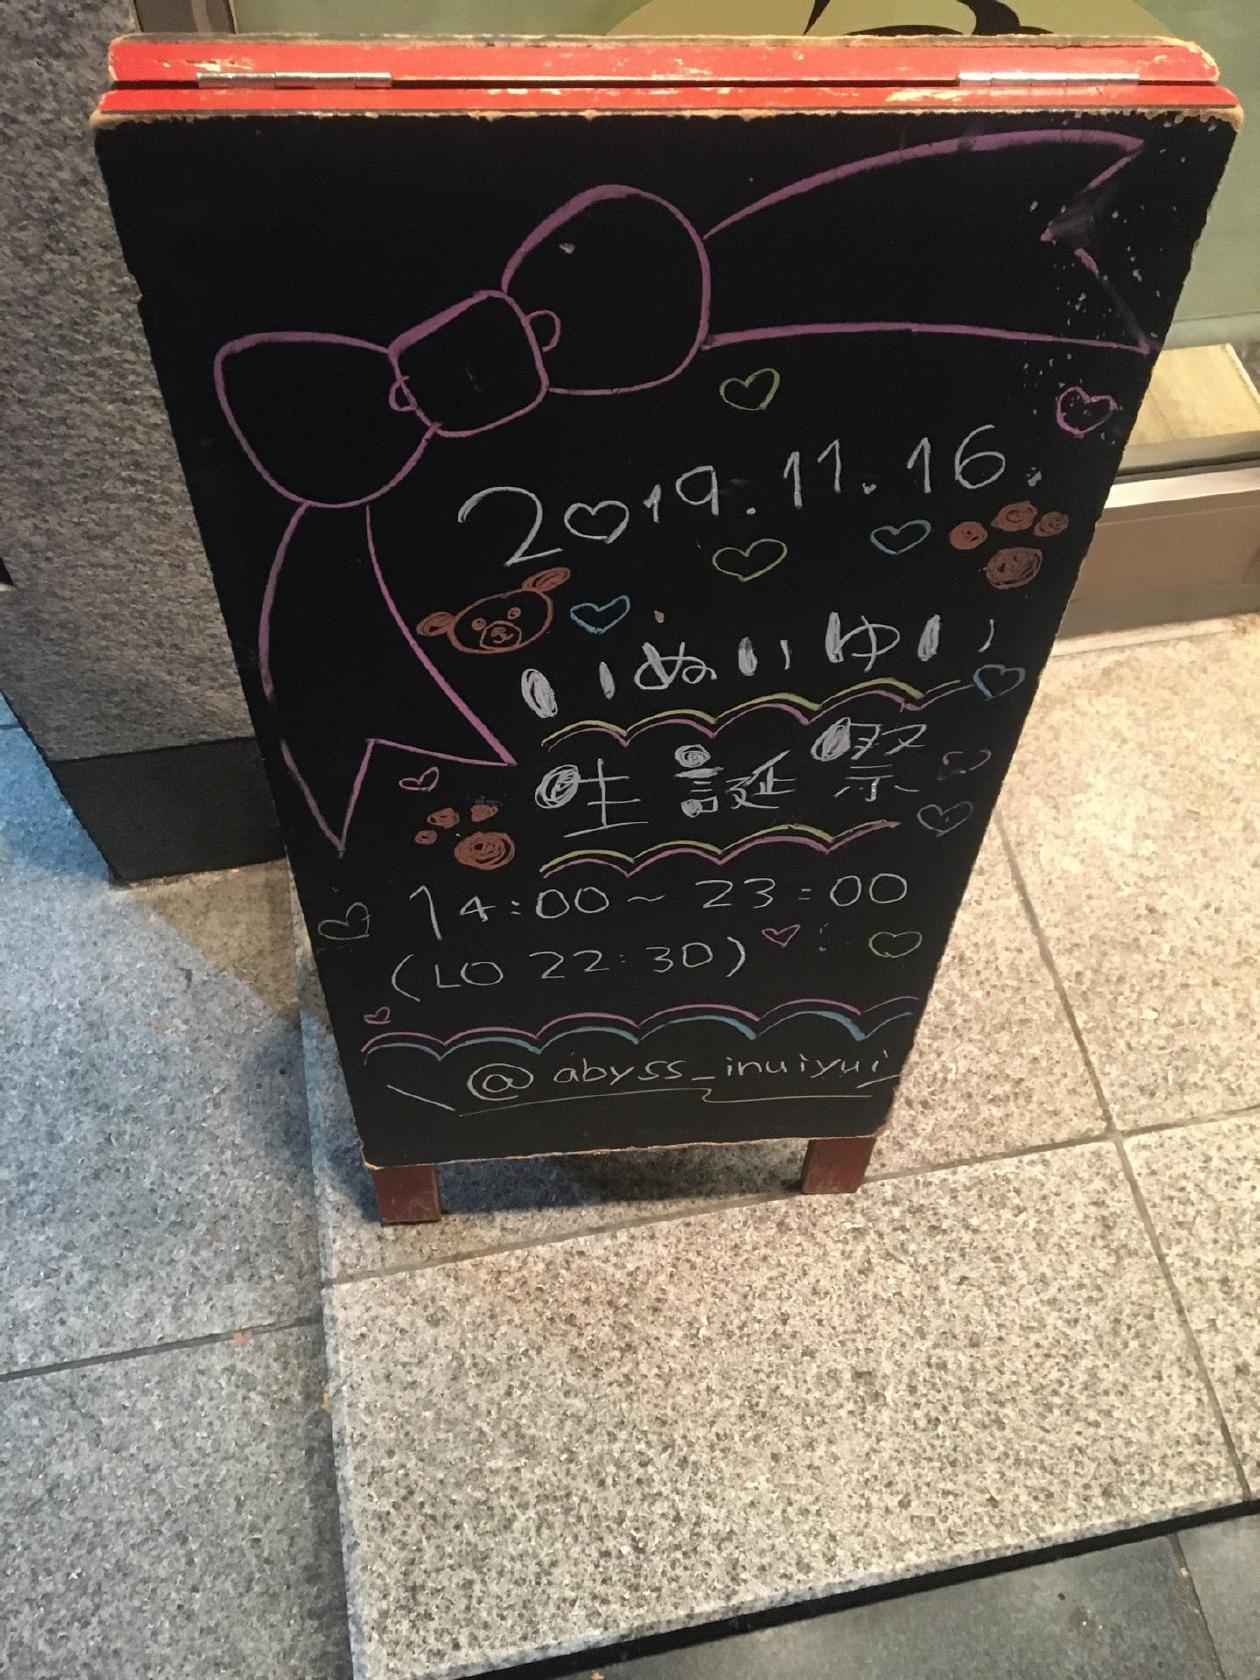 2019.11.16.
いぬいゆい
生誕祭
14:00~23:00
(LO 22:30)
@abyss_inuiyui